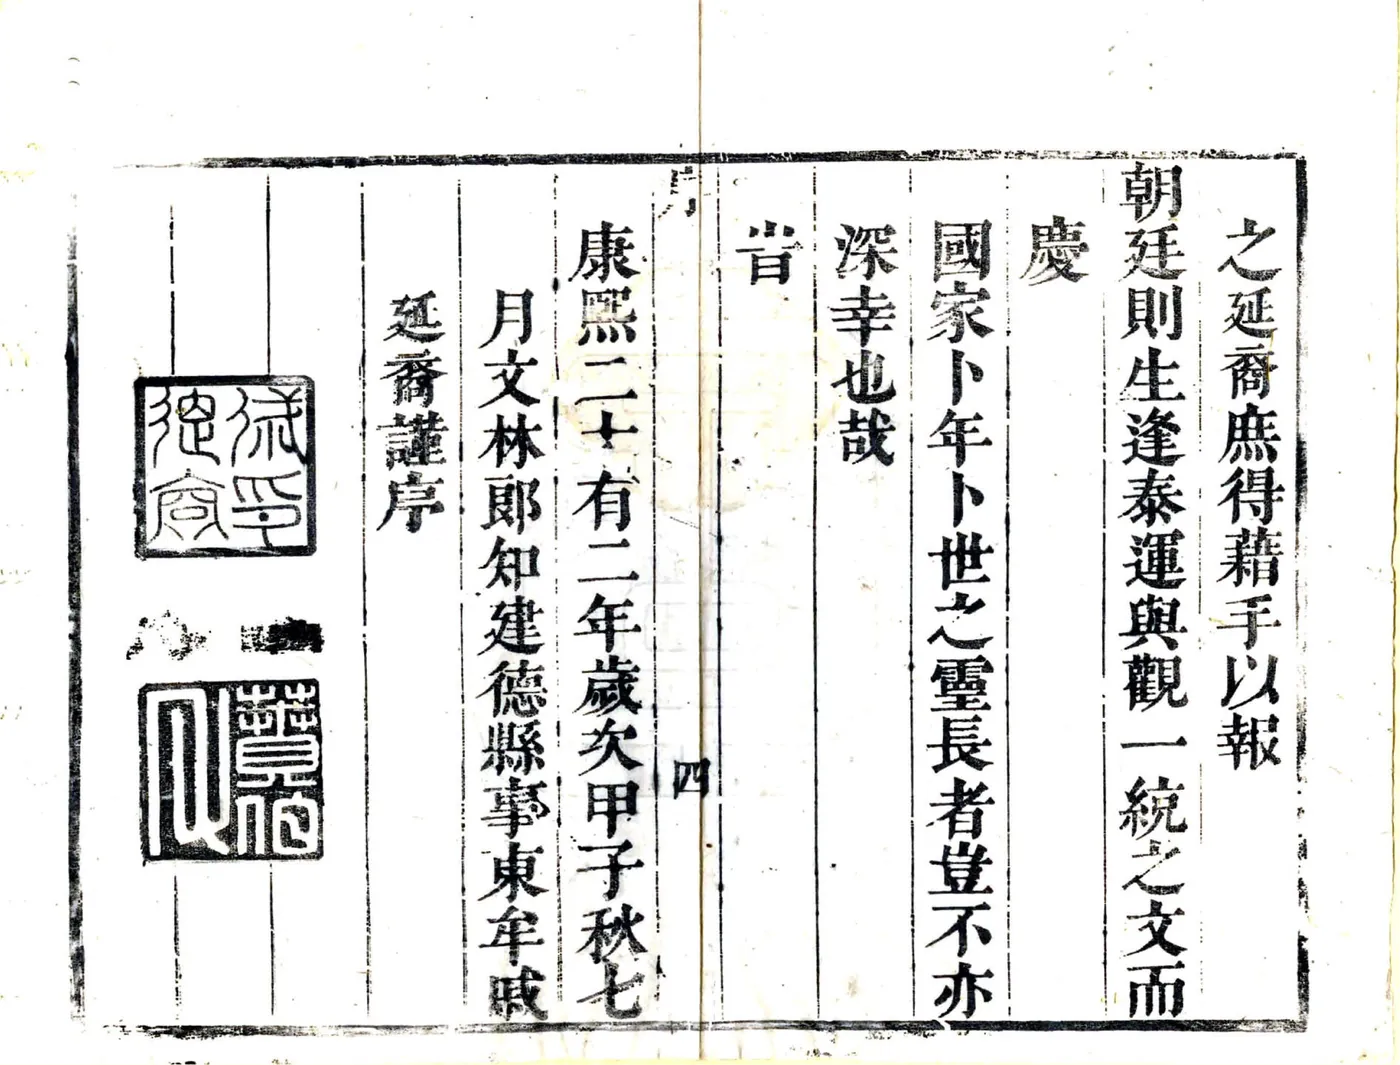 之延裔庶得藉手以報
朝廷則生逢泰運與觀一統之文而
慶
國家卜年卜世之靈長者豈不亦
深幸也哉
旹
四
康熙二十有二年歲次甲子秋七
月文林郎知建德縣事東牟戚
延裔謹序
戚印
延裔